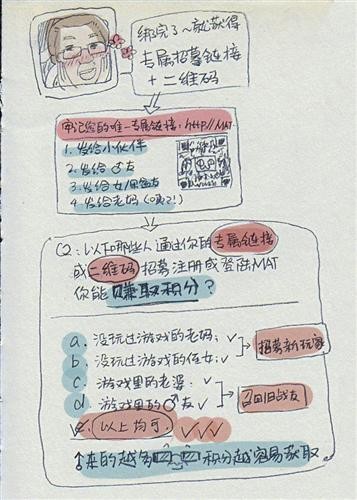 绑完了~就获得
专属招募链接
+二维码
牢记您的唯一专属链接:http//MAT
1.发给小伙伴
2.发给♂友
3.发给女/男盆友
4.发给老妈(咦?!)
Q2:以下哪些人通过你的专属链接
或二维码招募注册或登陆MAT
你能赚取积分?
a.没玩过游戏的老妈;✓
b.没玩过游戏的侄女;✓
招募新玩家
c.游戏里的老婆✓
d.游戏里的♂友✓
召回旧战友
e.以上均可.✓✓✓
来的越多 积分越容易获取